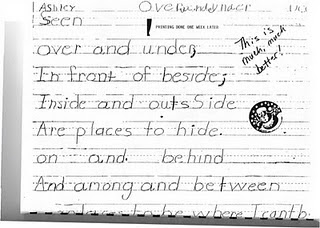 Ashley
Seen
PRINTING DONE ONE WEEK LATER
This is
much, much
better!
over and under,
In front of beside;
Inside and outsSide
Are places to hide.
on and behind
And among and between
places to be where I cantb